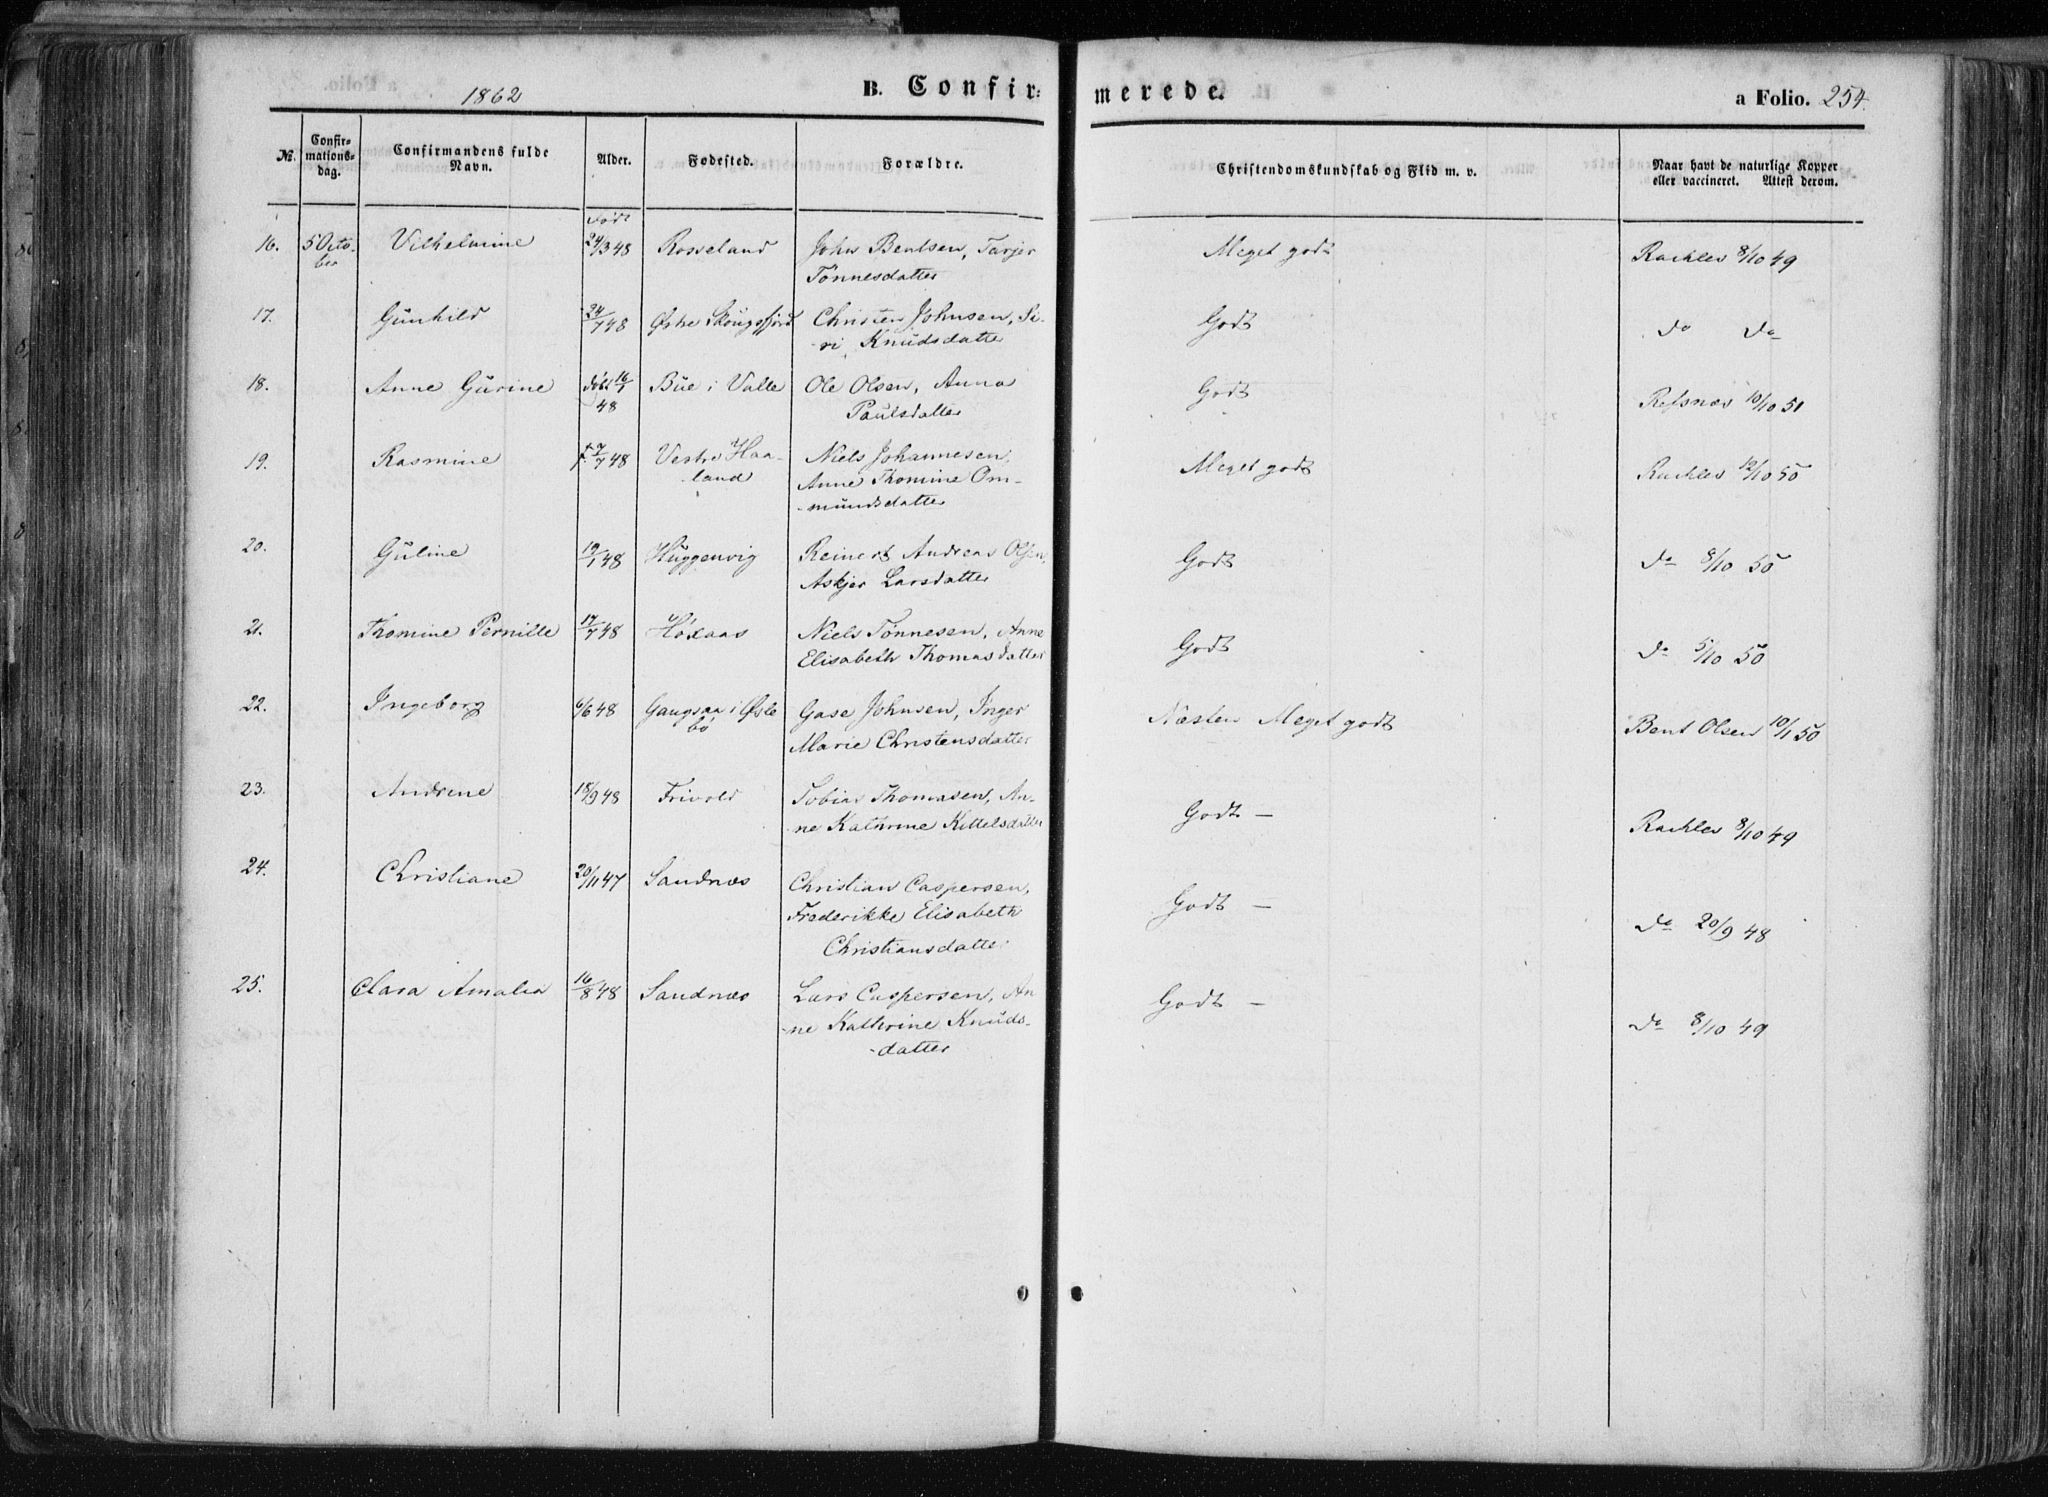 1862 B. Confir= merede. a Folio. 254.
№. Confirmations-dag. Confirmandens fulde Navn. Alder. Fødested. Forældre. Christendomskundskab og Flid m. v. Naar havt de naturlige Kopper eller vaccineret. Attest derom.
Født
16. 5 Octo- Vilhelmine 24/3 48 Rosseland John Bentsen, Tarjer Meget godt Rachlev 8/10 49
ber Tönnesdatter
17. Gunhild 24/7 48 Østre Skougsfjord Christen Johnsen, Si- Godt do do
ri Knudsdatter
18. Anne Gurine døbt 16/1 Bue i Valle Ole Olsen, Anna Godt Refsnæs 10/10 51
48 Paulsdatter
19. Rasmine f. 2/7 48 Vestre Haa- Niels Johannesen, Meget godt Rachlev 12/10 50
land Anne Thomine Om-
mundsdatter
20. Guline 19/1 48 Huggenvig Reinert Andreas Olsen, Godt do 8/10 50
Askjer Larsdatter
21. Thomine Pernille 17/7 48 Høxaas Niels Tönnesen, Anne Godt do 5/10 50
Elisabeth Thomasdatter
22. Ingeborg 6/6 48 Gangsaa i Øsle Gase Johnsen, Inger Næsten Meget godt Bent Olsen 10/1 50
bö Marie Christensdatter
23. Andrine 18/9 48 Frivold Tobias Thomasen, An- Godt — Rachlev 8/10 49
ne Kathrine Kittelsdatter
24. Christiane 20/11 47 Sandnæs Christian Caspersen, Godt — do 20/9 48
Frederikke Elisabeth
Christiansdatter
25. Clara Amalia 16/8 48 Sandnæs Lars Caspersen, An- Godt — do 8/10 49
ne Kathrine Knuds-
datter